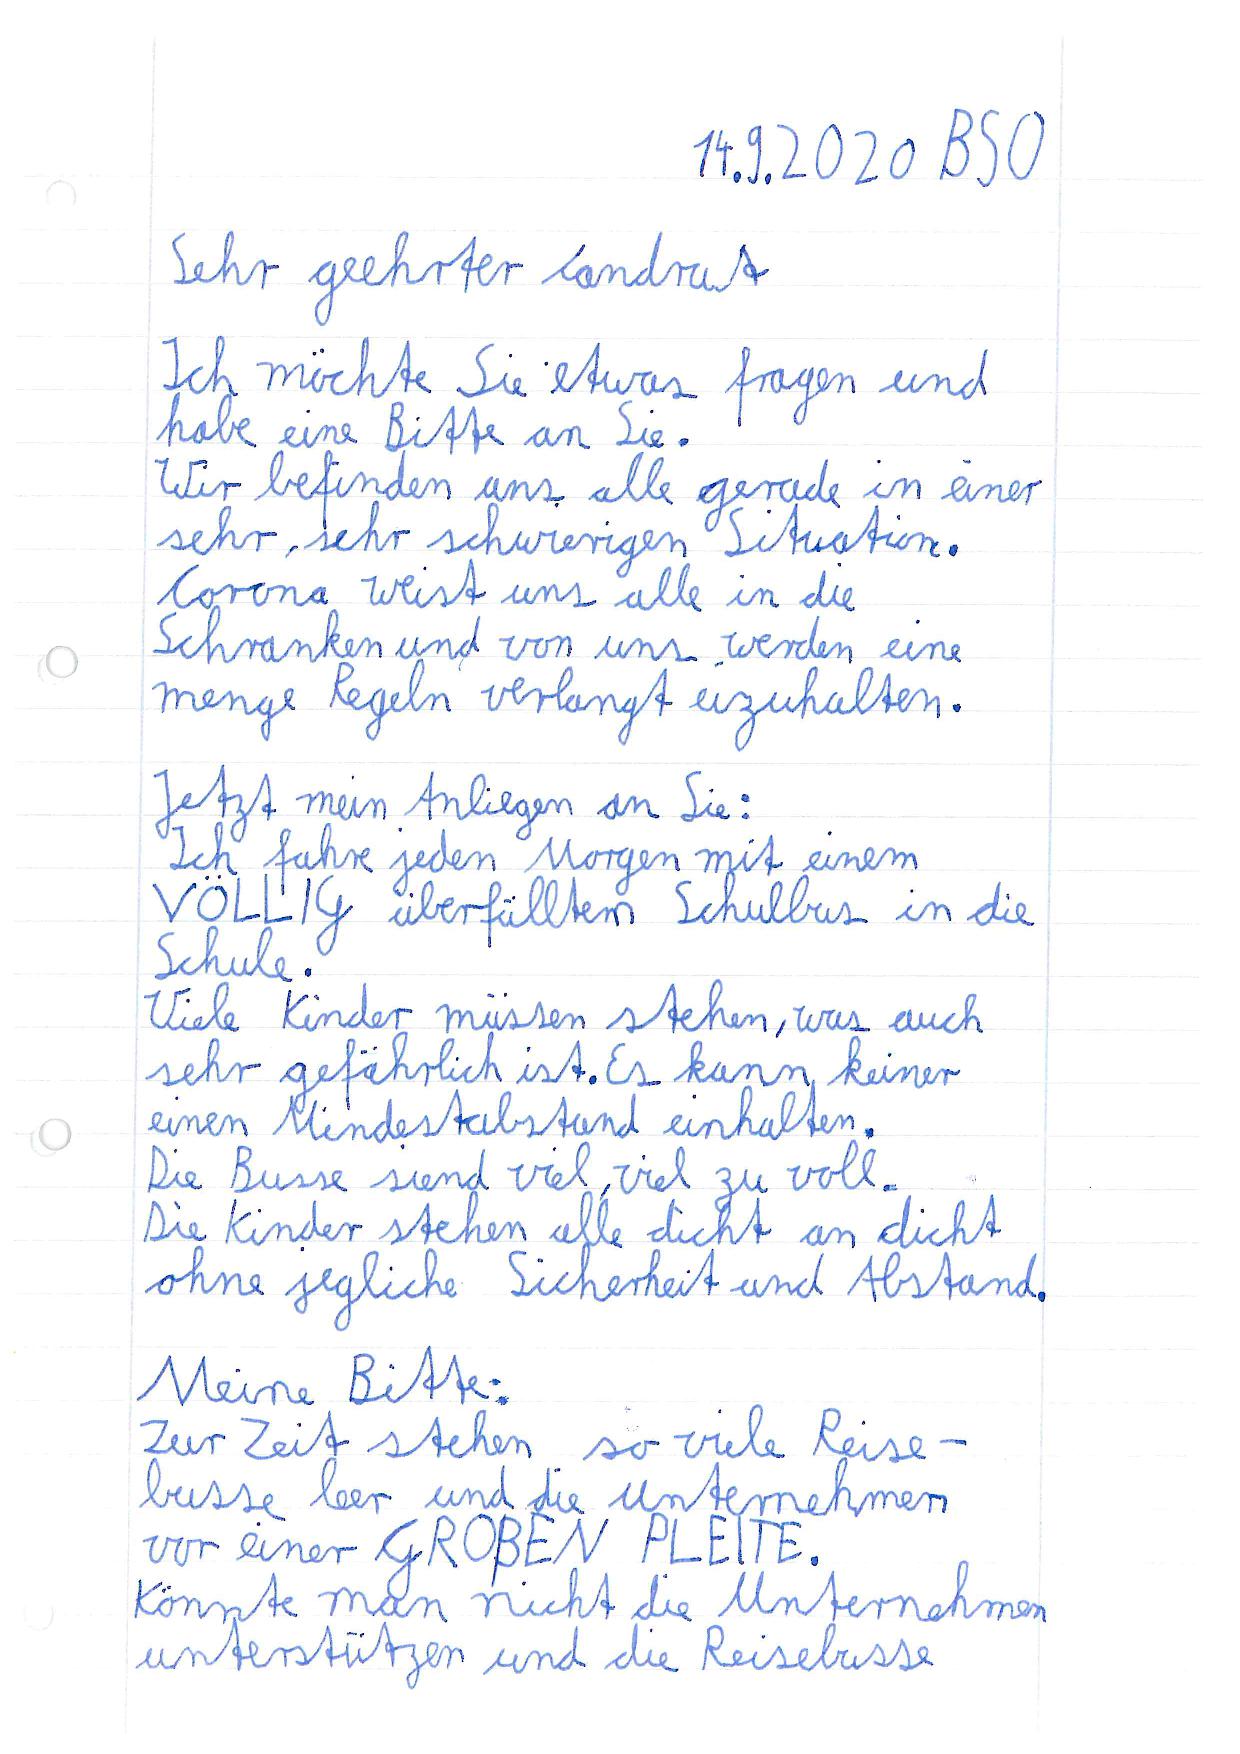 14.9.2020 BSO
Sehr geehrter Landrat
Ich möchte Sie etwas fragen und
habe eine Bitte an Sie.
Wir befinden uns alle gerade in einer
sehr, sehr schwierigen Situation.
Corona weist uns alle in die
Schranken und von uns werden eine
menge Regeln verlangt eizuhalten.
Jetzt mein Anliegen an Sie:
Ich fahre jeden Morgen mit einem
VÖLLIG überfülltem Schulbus in die
Schule.
Viele Kinder müssen stehen, was auch
sehr gefährlich ist. Es kann keiner
einen Mindestabstand einhalten.
Die Busse siend viel, viel zu voll.
Die Kinder stehen alle dicht an dicht
ohne jegliche Sicherheit und Abstand.
Meine Bitte:
Zur Zeit stehen so viele Reise-
busse leer und die Unternehmen
vor einer GROßEN PLEITE.
Könnte man nicht die Unternehmen
unterstützen und die Reisebusse